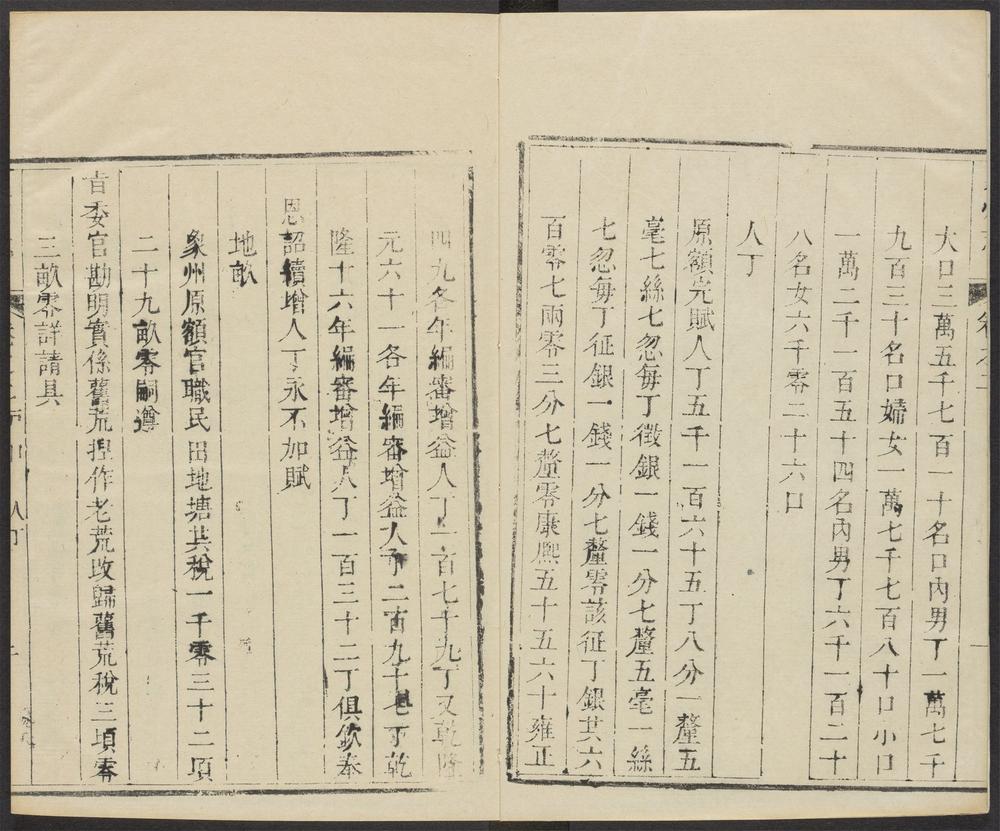 大口三萬五千七百一十名口內男丁一萬七千
九百三十名口婦女一萬七千七百八十口小口
一萬二千一百五十四名內男丁六千一百二十
八名女六千零二十六口
人丁
原額完賦人丁五千一百六十五丁八分一釐五
毫七絲七忽每丁徵銀一錢一分七釐五毫一絲
七忽每丁征銀一錢一分七釐零該征丁銀共六
百零七兩零三分七釐零康熙五十五六十雍正
四九各年編審增益人丁一百七十九丁又乾隆
元六十一各年編審增益人丁二百九十七丁乾
隆十六年編審增益人丁一百三十二丁俱欽奉
恩詔續增人丁永不加賦
地畝
象州原額官職民田地塘共稅一千零三十二項
二十九畝零嗣遵
旨委官勘明實係舊荒捏作老荒改歸舊荒稅三頃零
三畝零詳請具